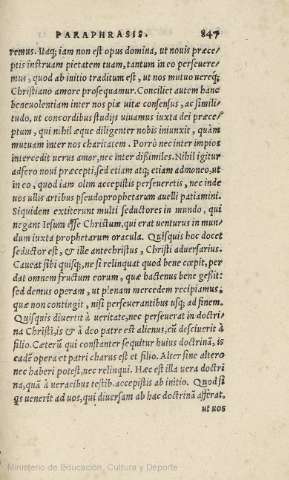 PARAPHRASIS. 847
remus. Itaq; iam non est opus domina, ut nouis præce/
ptis instruam pietatem tuam, tantum in eo perseuere/
mus, quod ab initio traditum est, ut nos mutuo ueroq́;
Christiano amore prosequamur. Conciliet autem hanc
beneuolentiam inter nos piæ uitæ consensus, ac simili/
tudo, ut concordibus studijs uiuamus iuxta dei præce/
ptum, qui nihil æque diligenter nobis iniunxit, quàm
mutuam inter nos charitatem. Porrò nec inter impios
intercedit uerus amor, nec inter dißimiles. Nihil igitur
adfero noui præcepti, sed etiam atq; etiam admoneo, ut
in eo, quod iam olim accepistis perseueretis, nec inde
uos ullis artibus pseudoprophetarum auelli patiamini.
Siquidem extiterunt multi seductores in mundo, qui
negant Iesum esse Christum, qui erat uenturus in mun/
dum iuxta prophetarum oracula. Quisquis hoc docet
seductor est, & ille antechristus, Christi aduersarius.
Caueat sibi quisq;, ne si relinquat quod bene cœpit, per
dat omnem fructum eorum, quæ hactenus bene geßit:
sed demus operam, ut plenam mercedem recipiamus,
quæ non contingit, nisi perseuerantibus usq; ad finem.
Quisquis diuertit à ueritate, nec perseuerat in doctri
na Christi, is & à deo patre est alienus, cũ desciuerit à
filio. Cæterũ qui constanter sequitur huius doctrinã, is
eadẽ opera et patri charus est et filio. Alter sine altero
nec haberi potest, nec relinqui. Hæc est illa uera doctri
na, quã à ueracibus testib. accepistis ab initio. Quod si
q̃s uenerit ad uos, qui diuersam ab hac doctrinã afferat,
ut uos
Ministerio de Educación, Cultura y Deporte